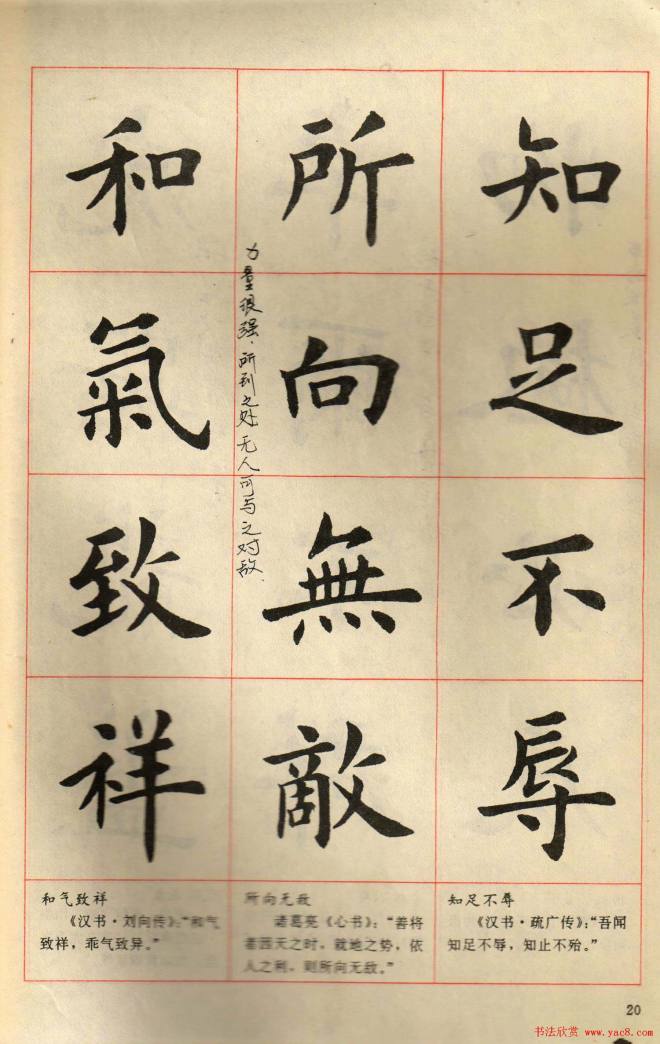 知足不辱
所向無敵
和氣致祥
力量很强，所到之处无人可与之对敌．
知足不辱
《汉书·疏广传》：“吾闻
知足不辱，知止不殆。”
所向无敌
诸葛亮《心书》：“善将
者因天之时，就地之势，依
人之利，则所向无敌。”
和气致祥
《汉书·刘向传》：“和气
致祥，乖气致异。”
20
书法欣赏 www.yac8.com